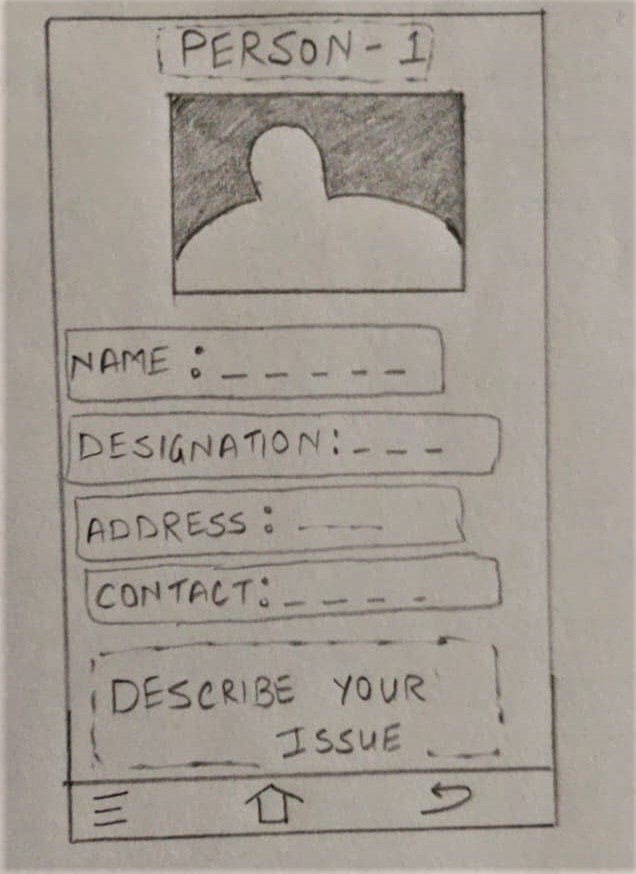 PERSON - 1
NAME : _ _ _ _ _
DESIGNATION: _ _ _
ADDRESS : ____
CONTACT: _ _ _ _
DESCRIBE YOUR
ISSUE